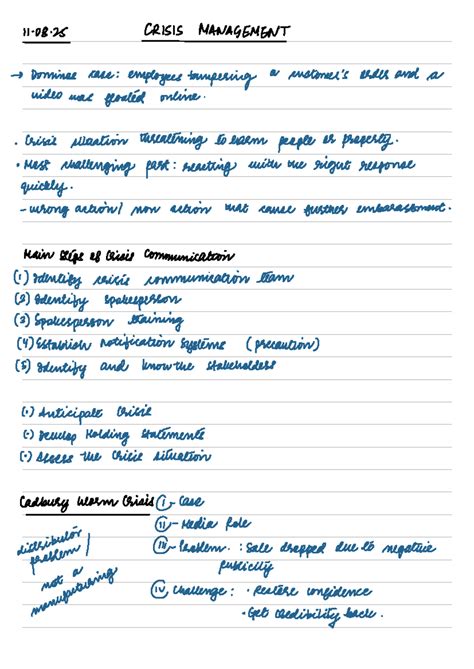 11-08-25
CRISIS MANAGEMENT
→ Dominos case: employees tampering a customer's order and a
video was floated online.
• Crisis situation threatning to harm people or property.
• Most challenging part: reacting with the right response
quickly.
- wrong action/ non action that cause further embarassment.
Main Steps of Crisis Communication
(1) Identify crisis communication team
(2) Identify spokesperson
(3) Spokesperson training
(4) Establish notification systems (precaution)
(5) Identify and know the stakeholders
(•) Anticipate Crisis
(•) Develop Holding Statements
(•) Assess the Crisis situation
Cadbury Worm Crisis (i - Case
(ii - Media Role
(iii - Problem. : Sale dropped due to negative
publicity
(iv, Challenge : • Restore confidence
• Get credibility back.
distributor
problem /
not a
manufacturing